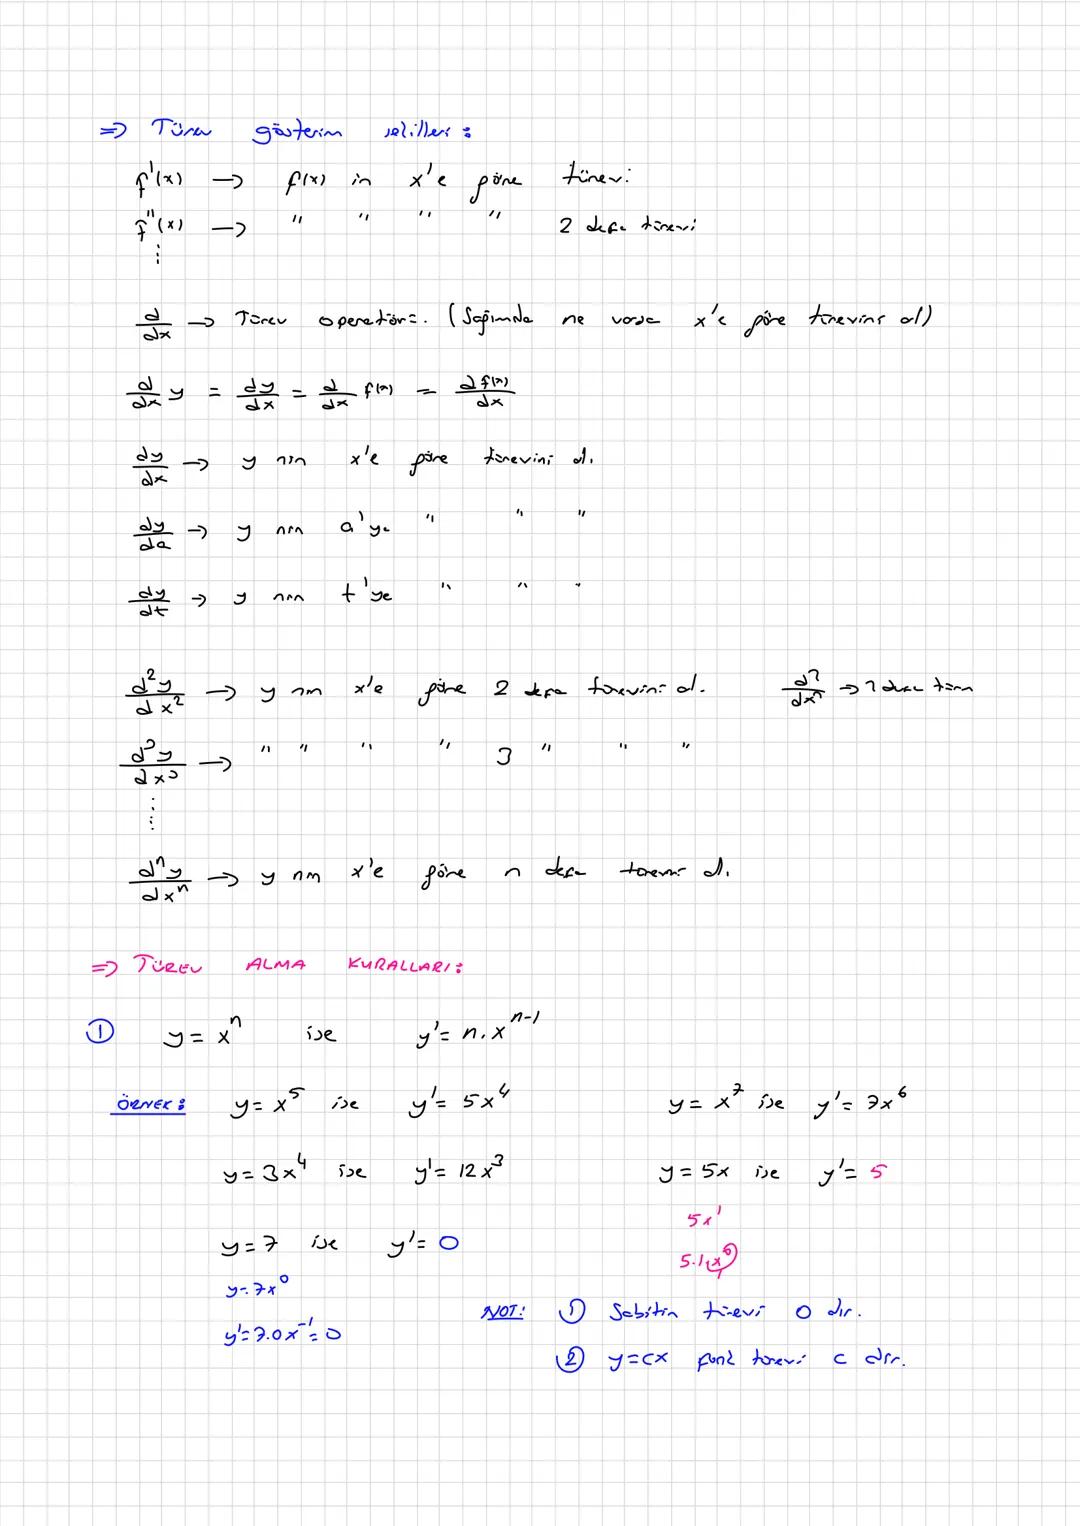 ⇒ Türev gösterim şekilleri :
f'(x) → f(x) in x'e göre türevi
f''(x) → " " " " 2 defa türevi
⋮
d/dx → Türev operatörü. (Sağımda ne varsa x'e göre türevini al)
d/dx y = dy/dx = d/dx f(x) = d f(x)/dx
dy/dx → y nin x'e göre türevini al.
dy/da → y nin a'ya " " "
dy/dt → y nin t'ye " " "
d²y/dx² → y nin x'e göre 2 defa türevini al. d⁷/dx⁷ → 7 defa türev
d³y/dx³ → " " " " 3 " " "
⋮
dⁿy/dxⁿ → y nin x'e göre n defa türevini al.
⇒ TÜREV ALMA KURALLARI :
① y = xⁿ ise y' = n.xⁿ⁻¹
ÖRNEK : y = x⁵ ise y' = 5x⁴ y = x⁷ ise y' = 7x⁶
y = 3x⁴ ise y' = 12x³ y = 5x ise y' = 5
5x¹
y = 7 ise y' = 0 5.1.x⁰
1
y = 7x⁰
NOT: ① Sabitin türevi 0 dır.
y' = 7.0x⁻¹ = 0
② y = cx fonk türevi c dir.